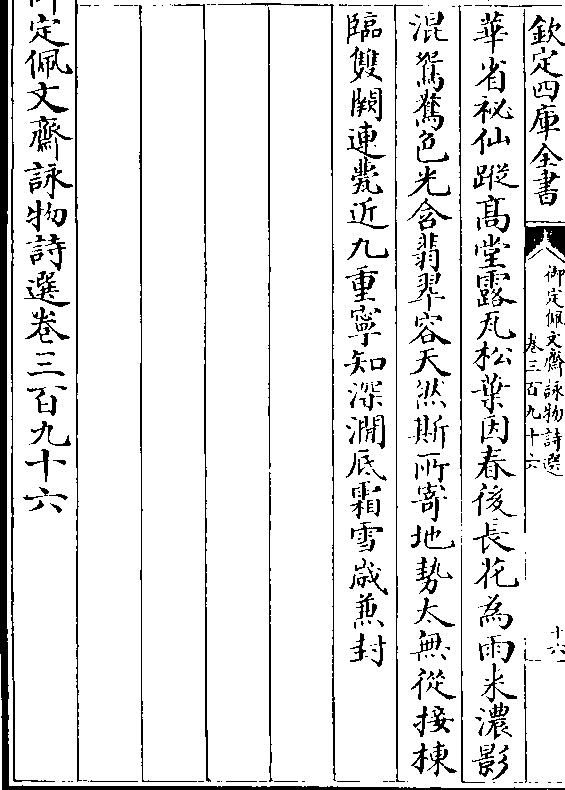 欽定四庫全書
御定佩文齋詠物詩選
卷三百九十六
十六
華省祕仙蹤高堂露瓦松葉因春後長花為雨来濃影
混鴛鴦色光含翡翠容天然斯所寄地勢太無從接棟
臨雙闕連甍近九重寧知深澗底霜雪歳兼封
御定佩文齋詠物詩選卷三百九十六